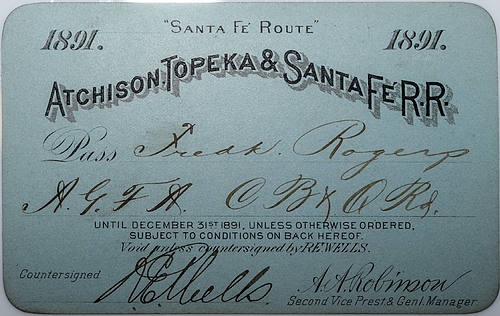 1891. "SANTA FÉ ROUTE" 1891.
ATCHISON, TOPEKA & SANTA FÉ R.R.
Pass Fredk. Rogers
A.G.F.A. C B & Q Rd.
UNTIL DECEMBER 31ST 1891, UNLESS OTHERWISE ORDERED,
SUBJECT TO CONDITIONS ON BACK HEREOF.
Void unless countersigned by R.E. WELLS.
Countersigned
R E Wells.
A.A. Robinson
Second Vice Prest. & Genl. Manager